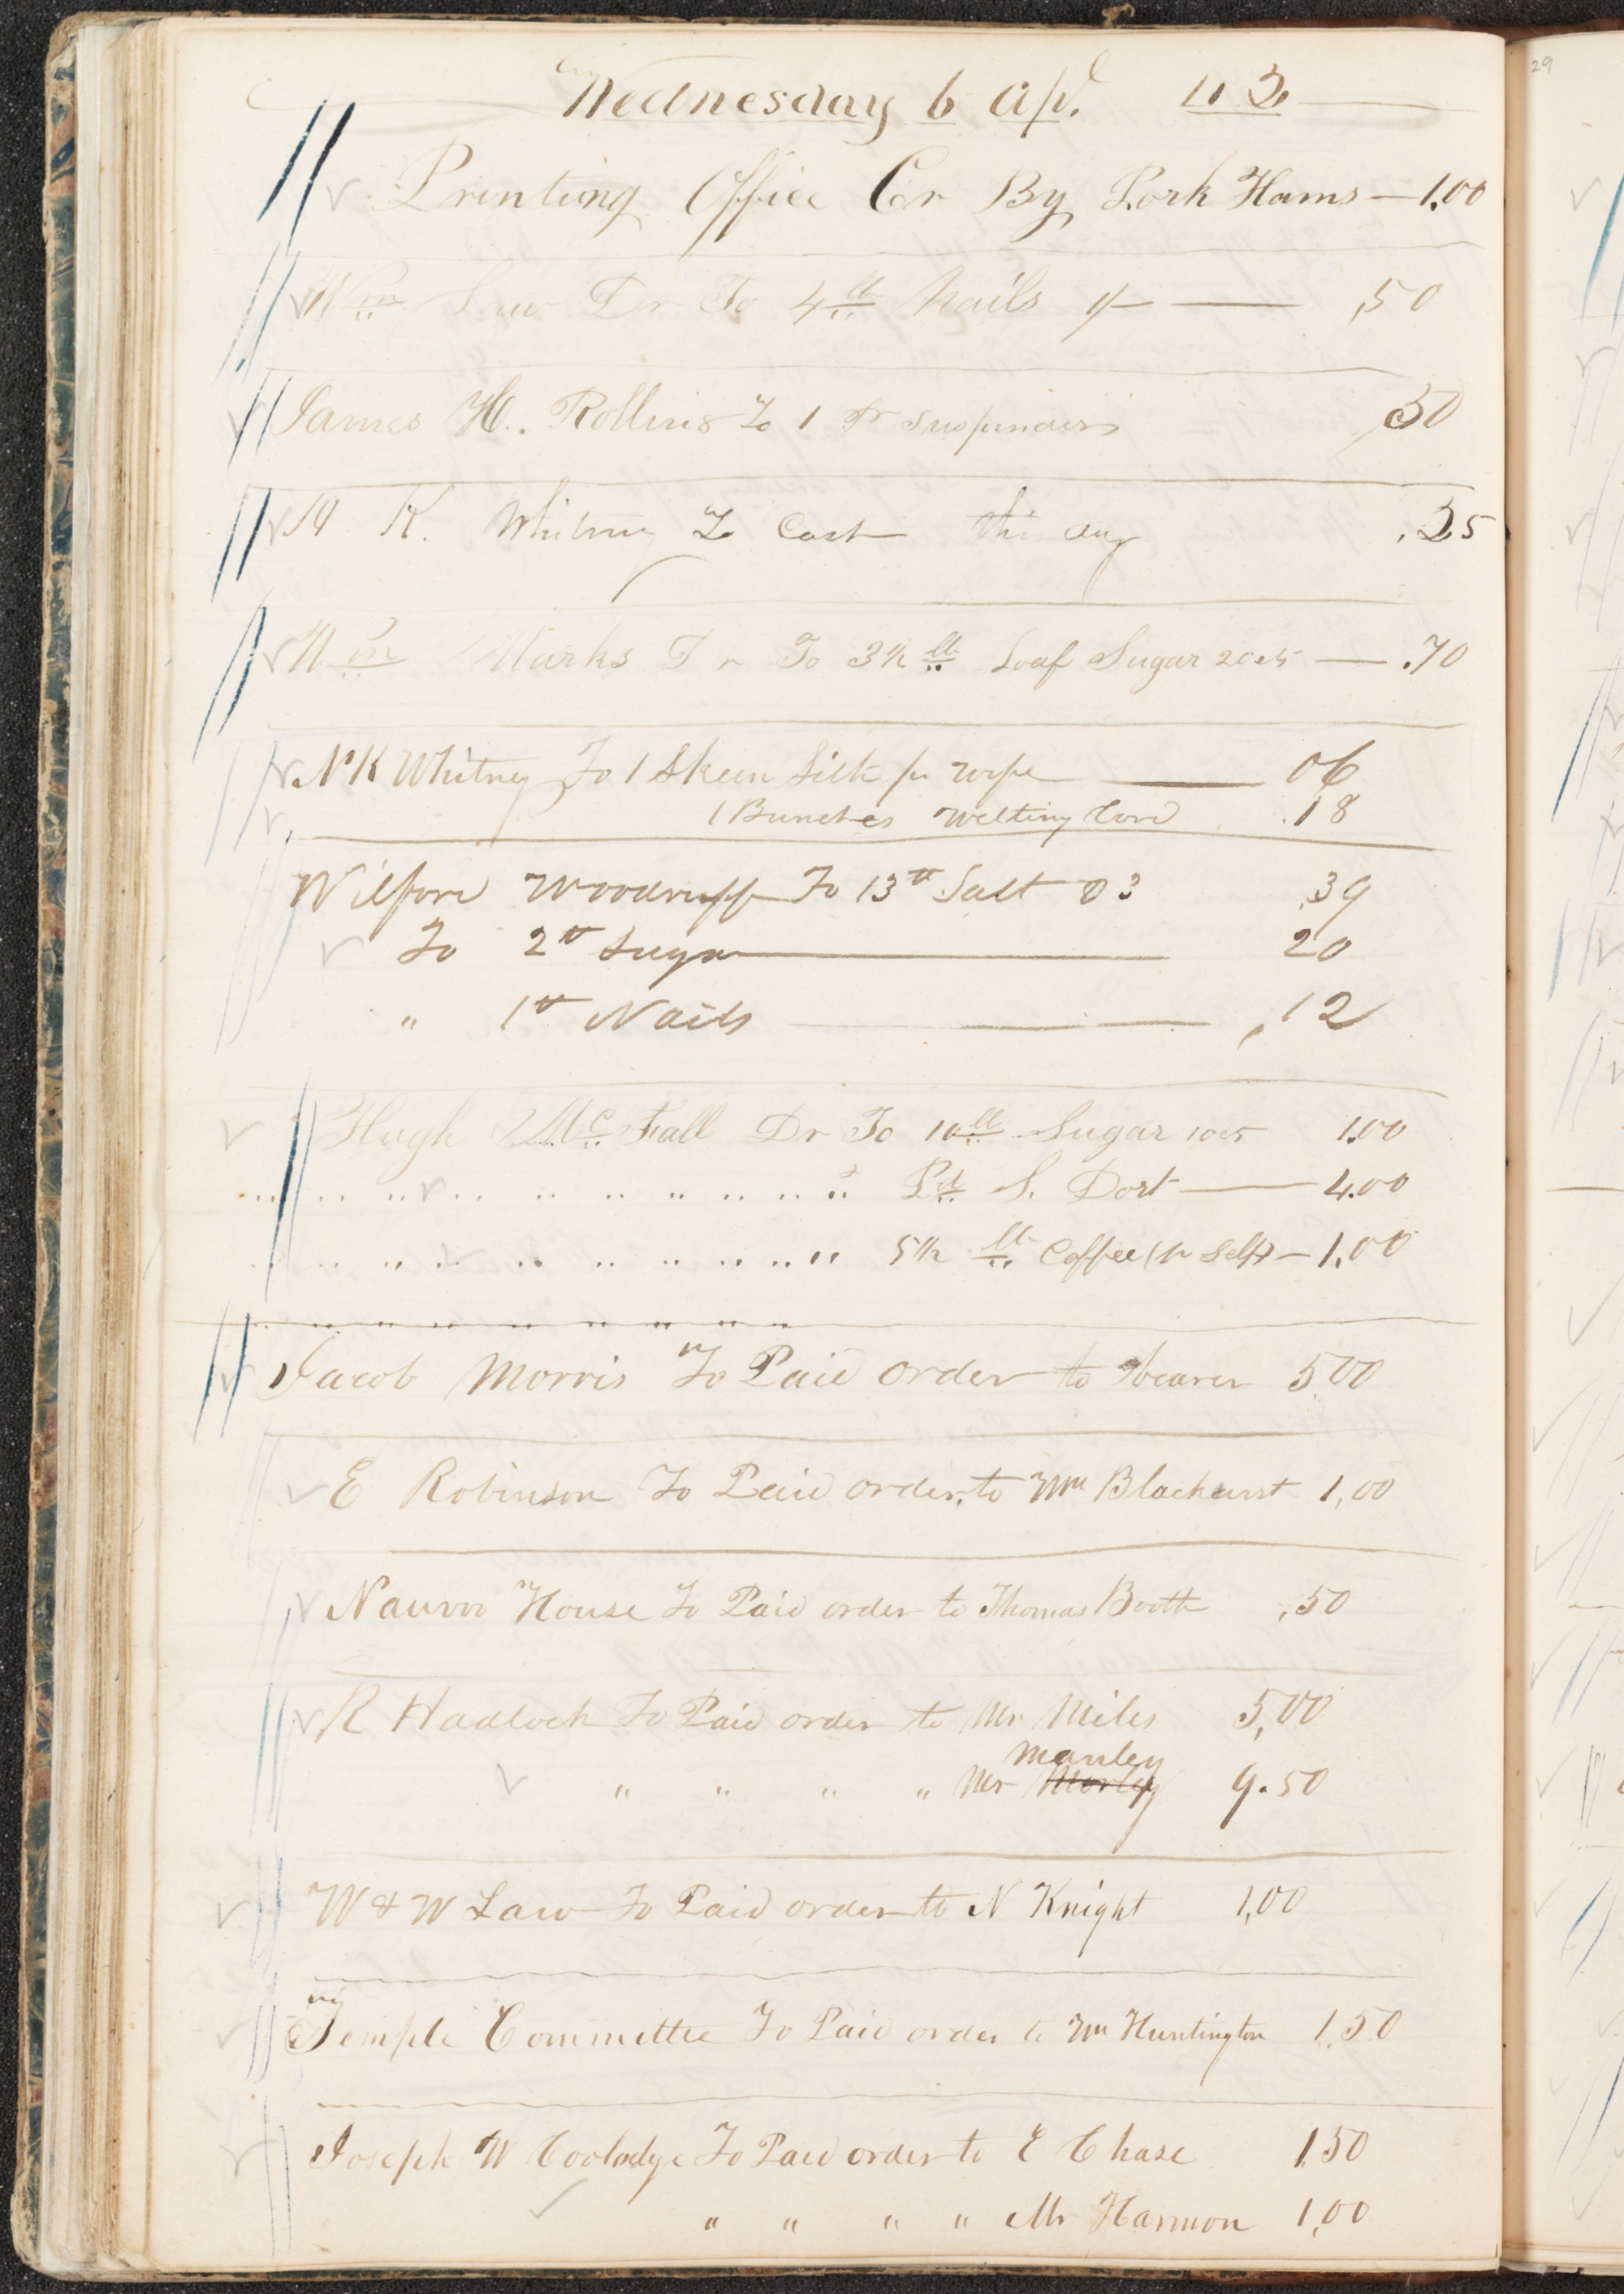 Wednesday 6 Apl. 42
Printing Office Cr By Pork Hams — 1.00
Wm Law Dr To 4 lb Nails 1/- — ,50
James H. Rollins To 1 Pr Suspenders 50
N K. Whitney To Cash this day .25
Wm Marks Dr To 3½ lb Loaf Sugar 20cts — .70
N K Whitney To 1 Skein Silk pr wife — 06
1 Bunches Welting Cord .18
Wilford Woodruff To 13 lb Salt 03 .39
To 2 lb Sugar — 20
" 1 lb Nails — ,12
Hugh McFall Dr To 10 lb Sugar 10cts 1.00
" " " " " " " " " " Pd S. Dort — 4.00
" " " " " " " " " " 5½ lb Coffee (pr Self) — 1.00
" " " " " " " " "
Jacob Morris To Paid order to bearer 5.00
E Robinson To Paid order to Wm Blackurst 1,00
Nauvoo House To Paid order to Thomas Booth ,50
R Hadlock To Paid order to Mr Miles 5,00
manley
" " " " Mr Morley 9.50
W & W Law To Paid order to N Knight 1,00
Temple Committee To Paid order to Wm Huntington 1.50
Joseph W Coolodge To Paid order to E Chase 1.50
" " " " Mr Harmon 1,00
29